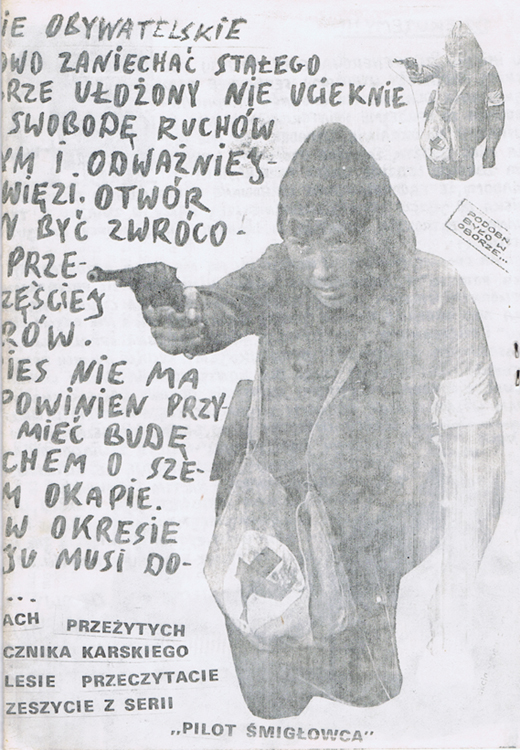 IE OBYWATELSKIE
OWO ZANIECHAĆ STAŁEGO
BRZE UŁOŻONY NIE UCIEKNIE
SWOBODĘ RUCHÓW
YM I ODWAŻNIEJ-
WIĘZI. OTWÓR
N BYĆ ZWRÓCO-
PRZE-
ZĘŚCIEJ
RÓW.
IES NIE MA
POWINIEN PRZY-
MIEĆ BUDĘ
CHEM O SZE-
M OKAPIE.
W OKRESIE
SU MUSI DO-
...
PODOBN
BYŁO W
OBORZE...
ACH PRZEŻYTYCH
CZNIKA KARSKIEGO
LESIE PRZECZYTACIE
ZESZYCIE Z SERII
„PILOT ŚMIGŁOWCA"